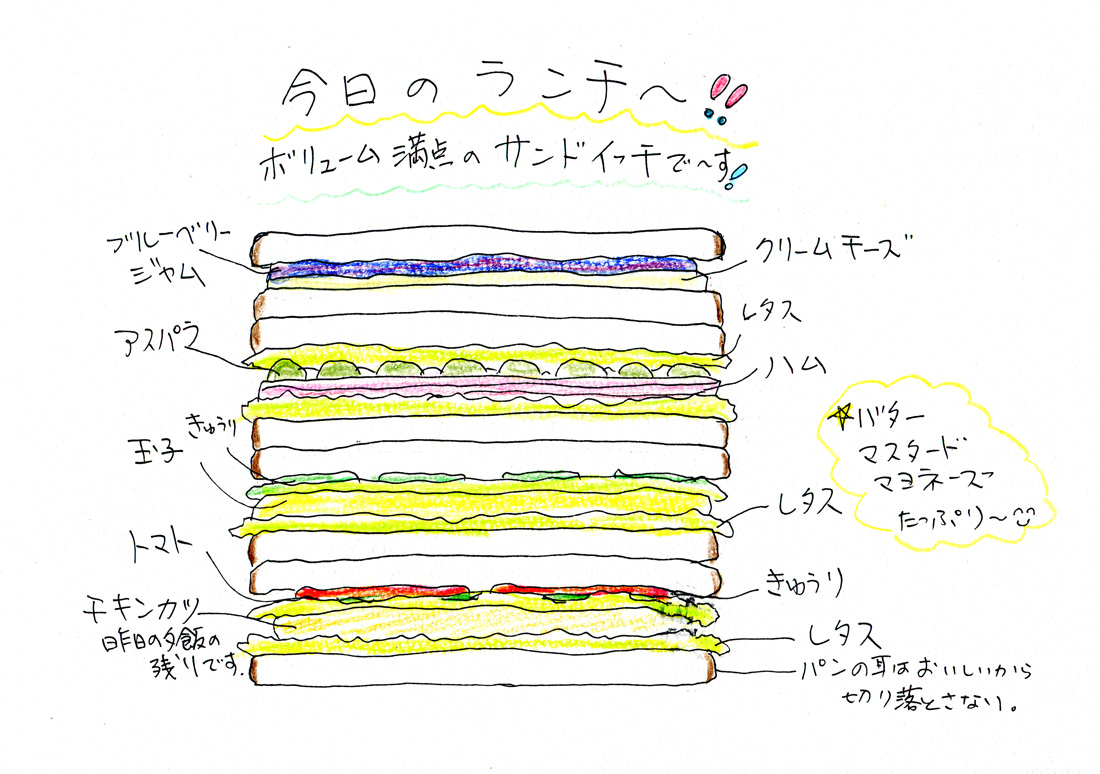 今日のランチ～!!
ボリューム満点のサンドイッチで～す!
ブルーベリー
ジャム
クリームチーズ
アスパラ
レタス
ハム
きゅうり
玉子
☆バター
マスタード
マヨネーズ
たっぷり～
レタス
トマト
きゅうり
チキンカツ
昨日の夕飯の
残りです.
レタス
パンの耳はおいしいから
切り落とさない。